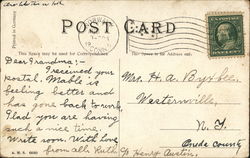 POST CARD
This Space may be used for Correspondence
The Space is for Address only.
Dear Grandma:-
I received your
postal. Mable is
feeling better and
has gone back to work.
Glad you are having
such a nice time.
Write soon. With love
from all. Ruth
Mrs. H. A.
Westernville,
N. Y.
Oneida County
c/o Henry Austin.